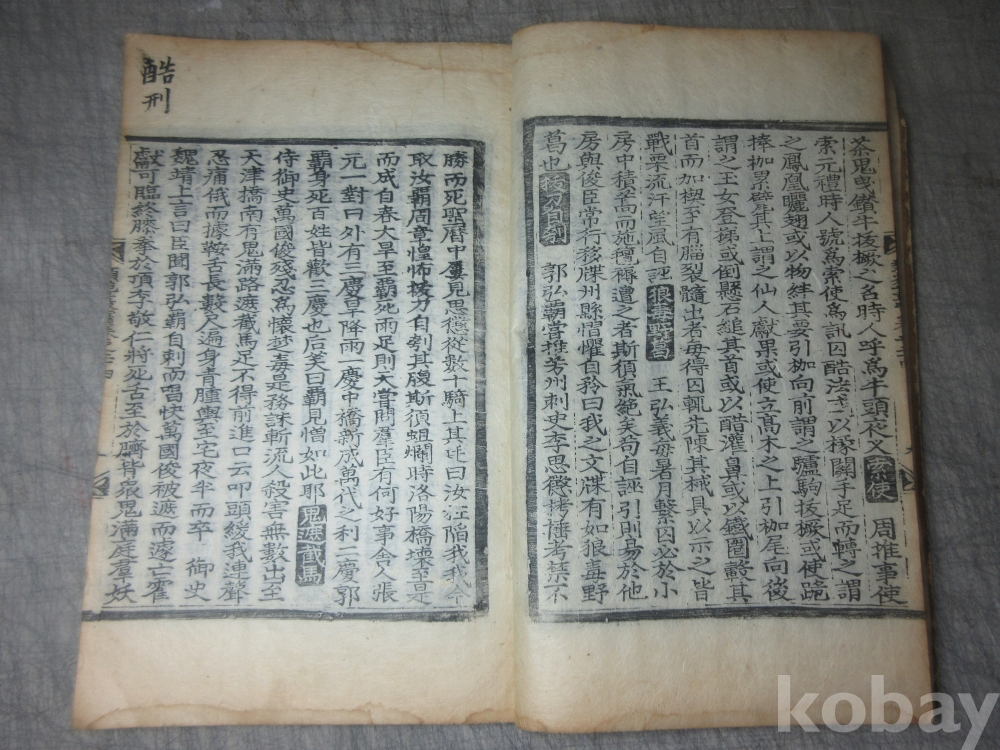 茶鬼曳鑽牛拔橛之名時人呼為牛頭夜叉 索使 周推事使
索元禮時人號為索使為訊囚酷法或以椽關手足而轉之謂
之鳳凰曬翅或以物絆其要引枷向前謂之驢駒拔橛或使跪
捧枷累甓其上謂之仙人獻果或使立高木之上引枷尾向後
謂之玉女登梯或倒懸石縋其首或以醋灌鼻或以鐵圈轂其
首而加楔至有腦裂髓出者每得囚輒先陳其械具以示之皆
戰栗流汗望風自誣 狼毒野葛 王弘義每暑月繫囚必於小
房中積蒿而施氊褥遭之者斯須氣絶矣苟自誣引則易於他
房與俊臣常行移牒州縣慴懼自矜曰我之文牒有如狼毒野
葛也 拔刀自刳 郭弘霸嘗推芳州刺史李思徵拷捶考禁不
勝而死聖曆中屢見思徵從數十騎上其廷曰汝枉陷我我今
取汝霸周章惶怖拔刀自刳其腹斯須蛆爛時洛陽橋壞至是
而成自春大旱至霸死雨足則天嘗問羣臣有何好事舍人張
元一對曰外有三慶旱降雨一慶中橋新成萬代之利二慶郭
霸身死百姓皆歡三慶也后笑曰霸見憎如此耶 鬼遮截馬
侍御史萬國俊殘忍為懷楚毒是務誅斬流人殺害無數出至
天津橋南有鬼滿路遮截馬足不得前進口云叩頭緩我連聲
忍痛俄而據鞍舌長數尺遍身青腫輿至宅夜半而卒 御史
魏靖上言曰臣聞郭弘霸自刺而唱快萬國俊被遮而遽亡霍
獻可臨終膝拳於項李敬仁將死舌至於臍皆衆鬼滿庭羣妖
酷刑
kobay